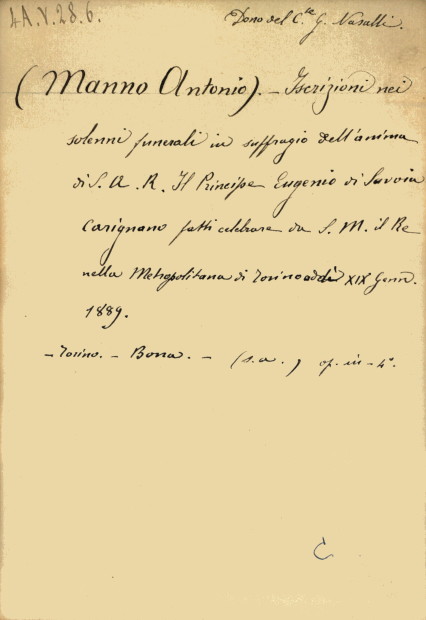 4A.V.28.6.
Dono del C.te G. Nasalli.
(Manno Antonio). - Iscrizioni nei
solenni funerali in suffragio dell'anima
di S. A. R. Il Principe Eugenio di Savoia
Carignano fatti celebrare da S. M. il Re
nella Metropolitana di Torino addì XIX Genn.
1889.
- Torino. - Bona. - (s.a.) op. in-4°.
C